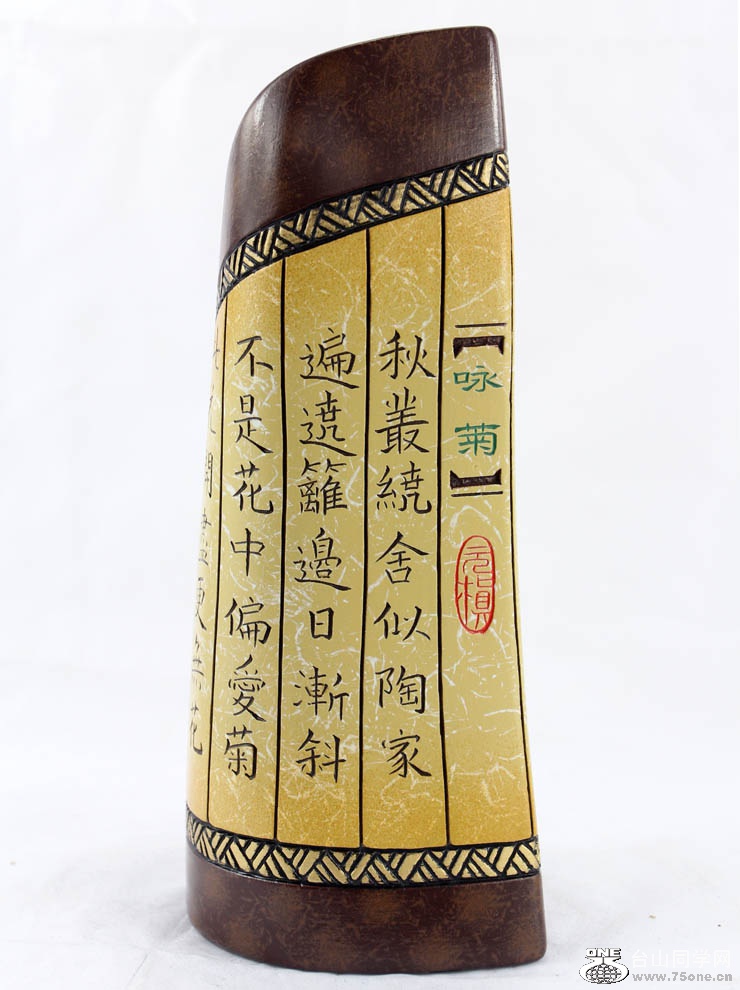 【咏菊】
元稹
秋叢繞舍似陶家
遍遶籬邊日漸斜
不是花中偏愛菊
開盡更無花
ONE
台山同学网
www.75one.cn